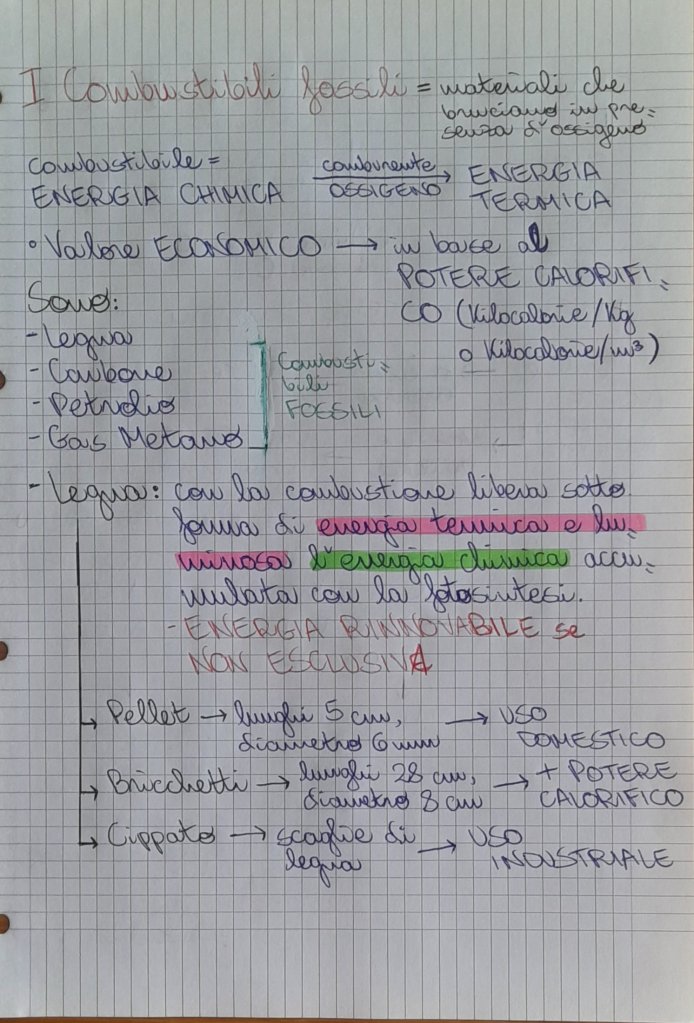 I Combustibili fossili = materiali che
bruciano in pre=
senza d'ossigeno
combustibile =
ENERGIA CHIMICA
comburente
OSSIGENO
ENERGIA
TERMICA
• Valore ECONOMICO → in base al
POTERE CALORIFI=
CO (Kilocalorie/Kg
o Kilocalorie/m³)
Sono:
- Legna
- Carbone
- Petrolio
- Gas Metano
Combusti=
bili
FOSSILI
- Legna: con la combustione libera sotto
forma di energia termica e lu=
minosa l'energia chimica accu=
mulata con la fotosintesi.
- ENERGIA RINNOVABILE se
NON ESCLUSIVA
→ Pellet → lunghi 5 cm,
diametro 6 mm
→ USO
DOMESTICO
→ Bricchetti → lunghi 28 cm,
diametro 8 cm
→ + POTERE
CALORIFICO
→ Cippato → scaglie di
legna
→ USO
INDUSTRIALE